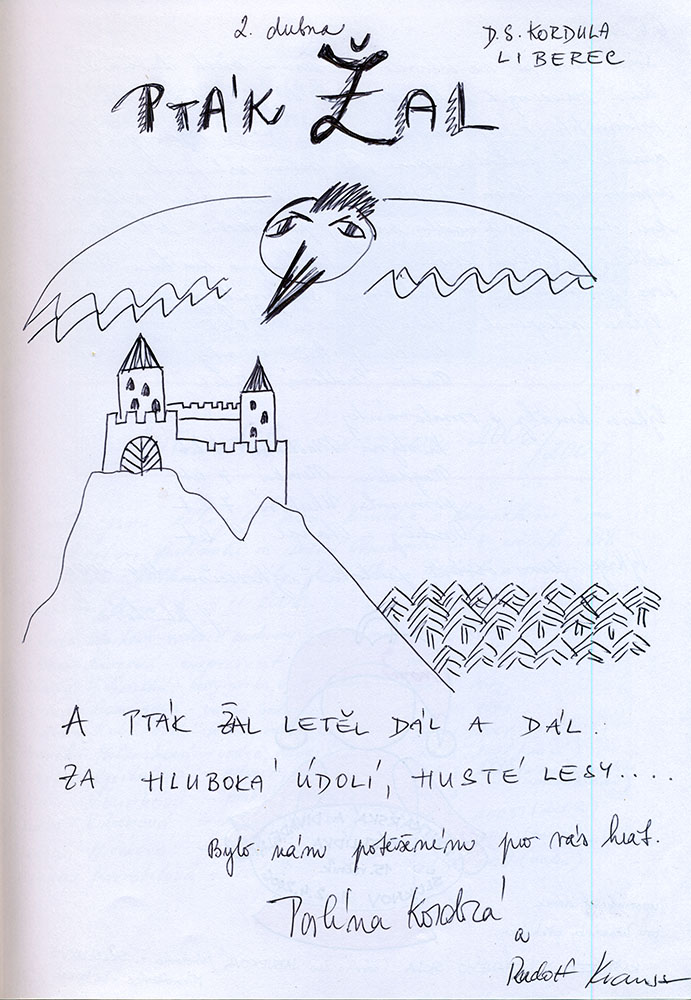 2. dubna
D.S. KORDULA
LIBEREC
PTÁK ŽAL
A PTÁK ŽAL LETĚL DÁL A DÁL.
ZA HLUBOKÁ ÚDOLÍ, HUSTÉ LESY....
Bylo nám potěšením pro vás hrát.
Kordzá
a
Rudolf Krauss